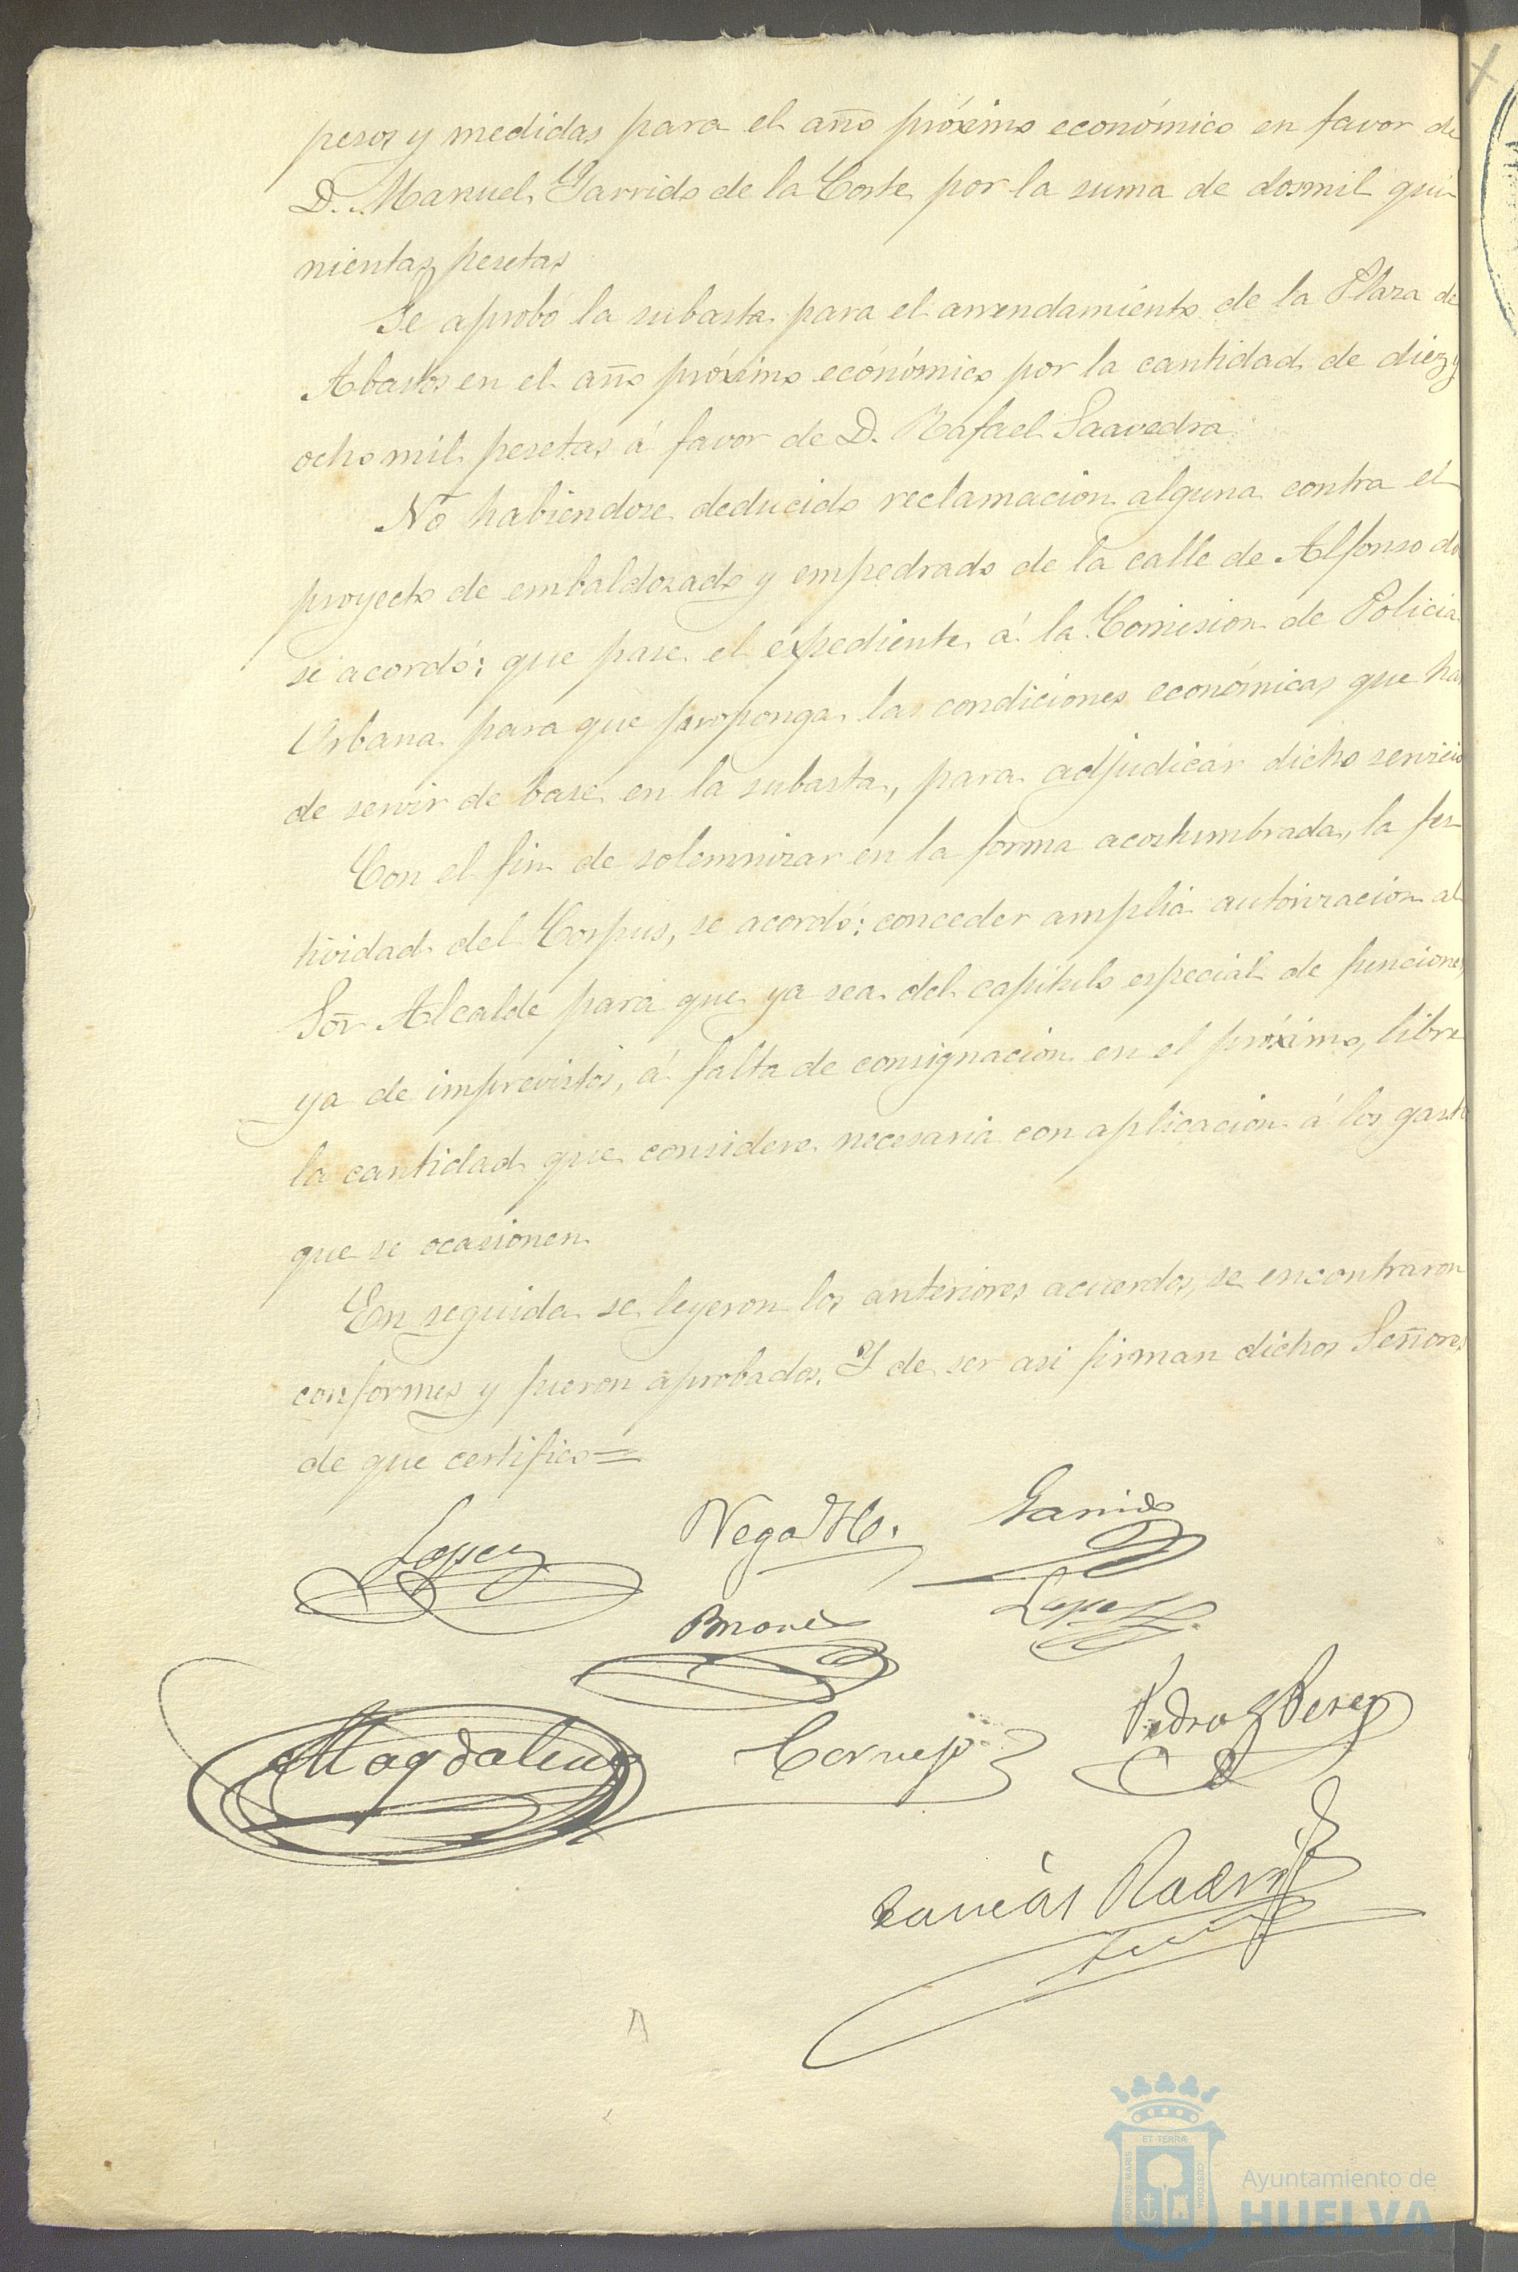 pesos y medidas para el año próximo económico en favor de
D. Manuel Garrido de la Corte por la suma de dosmil qui-
nientas pesetas
Se aprobó la subasta para el arrendamiento de la Plaza de
Abastos en el año próximo económico por la cantidad de diez y
ocho mil pesetas á favor de D. Rafael Saavedra.
No habiendose deducido reclamacion alguna contra el
proyecto de embaldosado y empedrado de la calle de Alfonso doce
se acordó: que pase el expediente á la Comision de Policia
Urbana para que proponga las condiciones económicas que han
de servir de base en la subasta, para adjudicar dicho servicio
Con el fin de solemnizar en la forma acostumbrada, la fes-
tividad del Corpus, se acordó: conceder amplia autorizacion al
Soñr Alcalde para que ya sea del capitulo especial de funciones
ya de imprevistos, á falta de consignacion en el próximo, libre
la cantidad que considere necesaria con aplicacion á los gastos
que se ocasionen.
En seguida se leyeron los anteriores acuerdos, se encontraron
conformes y fueron aprobados. Y de ser asi firman dichos Señores
de que certifico=
Lopez Vega Garrido
Lopez
Magdalena Cornejo Pedro G Perez
ET TERRÆ
PORTUS MARIS
CUSTODIA
Ayuntamiento de
HUELVA